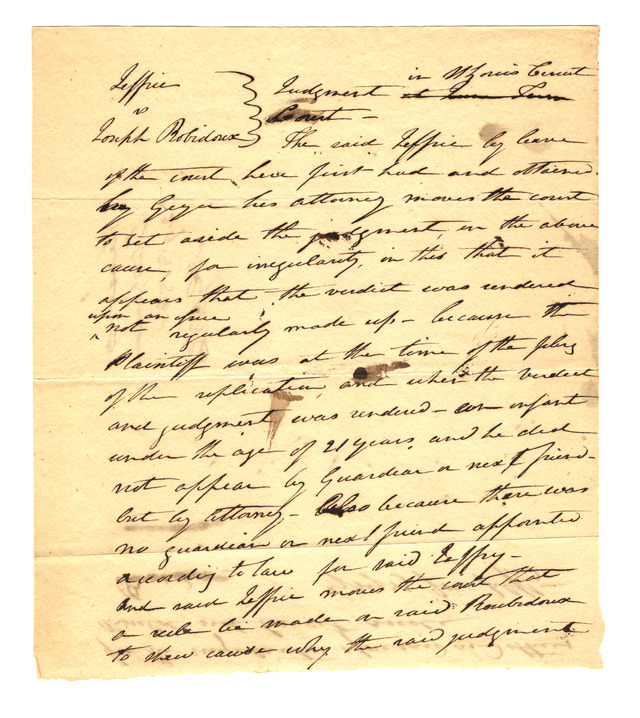 Jeffrie
vs
Joseph Robidoux
Judgment in St Louis Circuit
at June Term
Court –
The said Jeffrie by leave
of the court here first had and obtained
by Geyer his attorney moves the court
to set aside the judgment, in the above
cause, for irregularity, in this that it
appears that the verdict was rendered
upon an issue
not regularly made up – because the
plaintiff was at the time of the filing
of the replication, and when the verdict
and judgment was rendered – an infant
under the age of 21 years, and he did
not appear by Guardian or next friend –
but by attorney – Also because there was
no guardian or next friend appointed
according to law for said Jeffry –
And said Jeffrie moves the court that
a rule be made on said Roubidoux
to shew cause why the said judgment